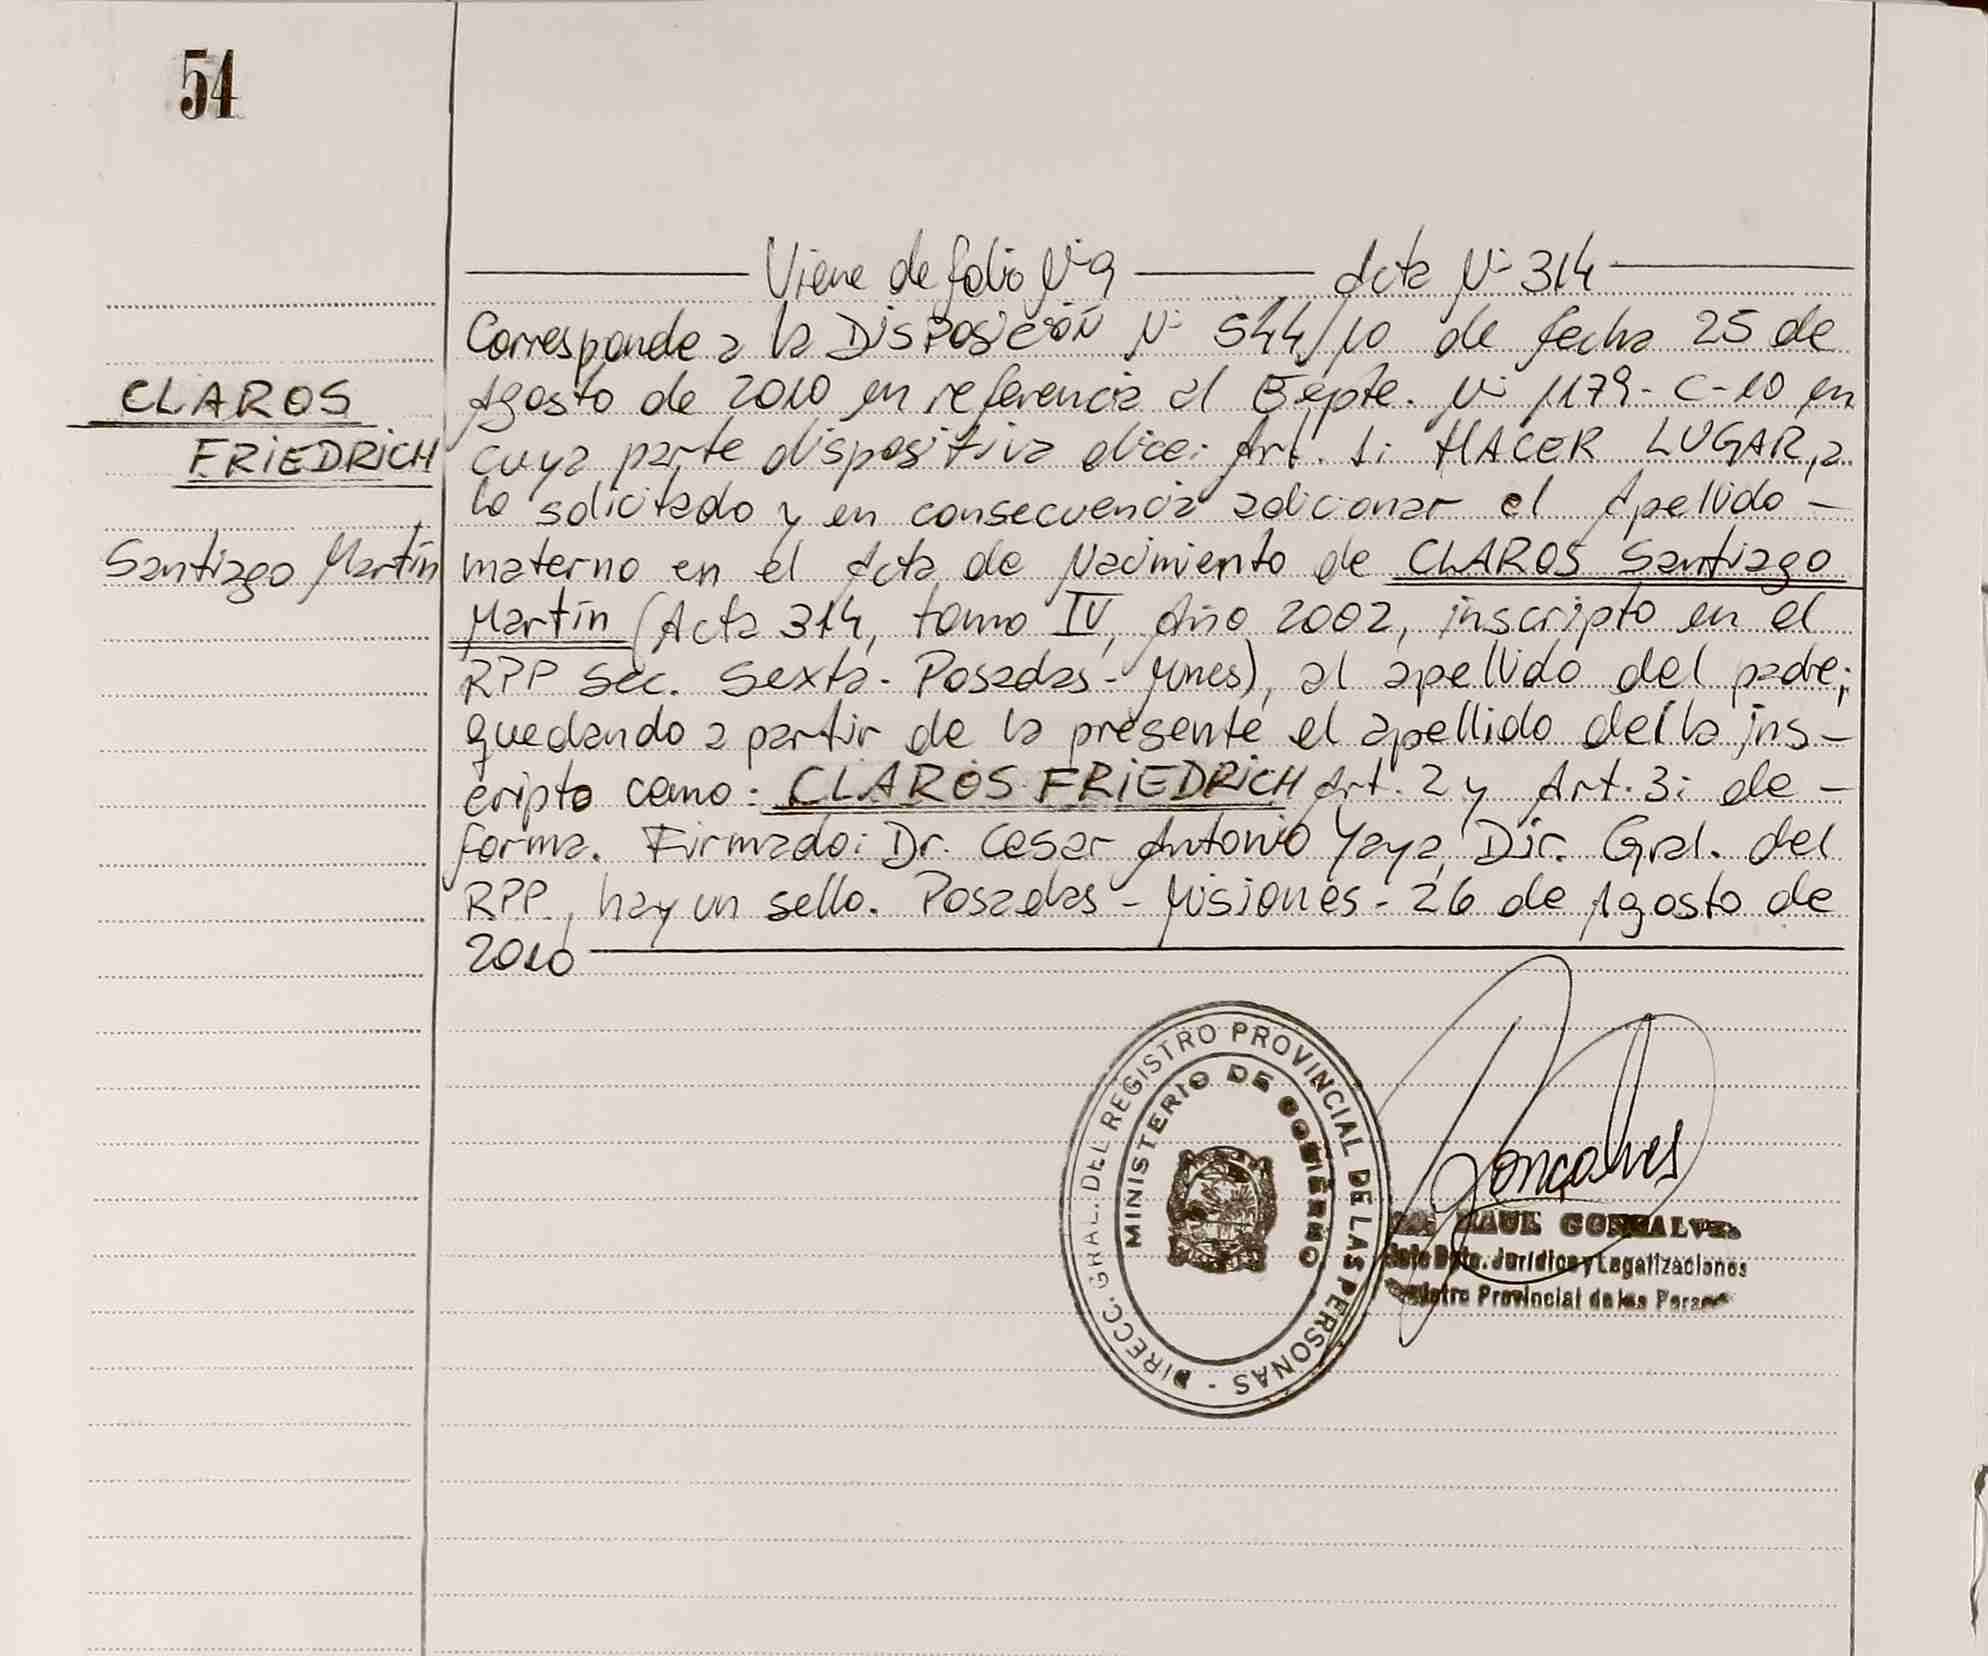 54
Viene de folio Nº 9 Acta Nº 314
Corresponde a la Disposición Nº 544/10 de fecha 25 de
Agosto de 2010 en referencia al Expte. Nº 1179-C-10 en
cuya parte dispositiva dice: Art. 1: HACER LUGAR, a
lo solicitado y en consecuencia adicionar el Apellido –
materno en el Acta de Nacimiento de CLAROS Santiago
Martín (Acta 314, tomo IV, Año 2002, inscripto en el
RPP Sec. Sexta - Posadas - Mnes), al apellido del padre;
quedando a partir de la presente el apellido del/la ins-
cripto como: CLAROS FRIEDRICH Art. 2 y Art. 3: de –
forma. Firmado: Dr. Cesar Antonio Yaya, Dir. Gral. del
RPP, hay un sello. Posadas - Misiones - 26 de Agosto de
2010
CLAROS
FRIEDRICH
Santiago Martín
DIRECC. GRAL. DEL REGISTRO PROVINCIAL DE LAS PERSONAS -
MINISTERIO DE GOBIERNO
Gonçalves
RAUL GONSALVES
Jefe Dpto. Jurídico y Legalizaciones
Registro Provincial de las Personas